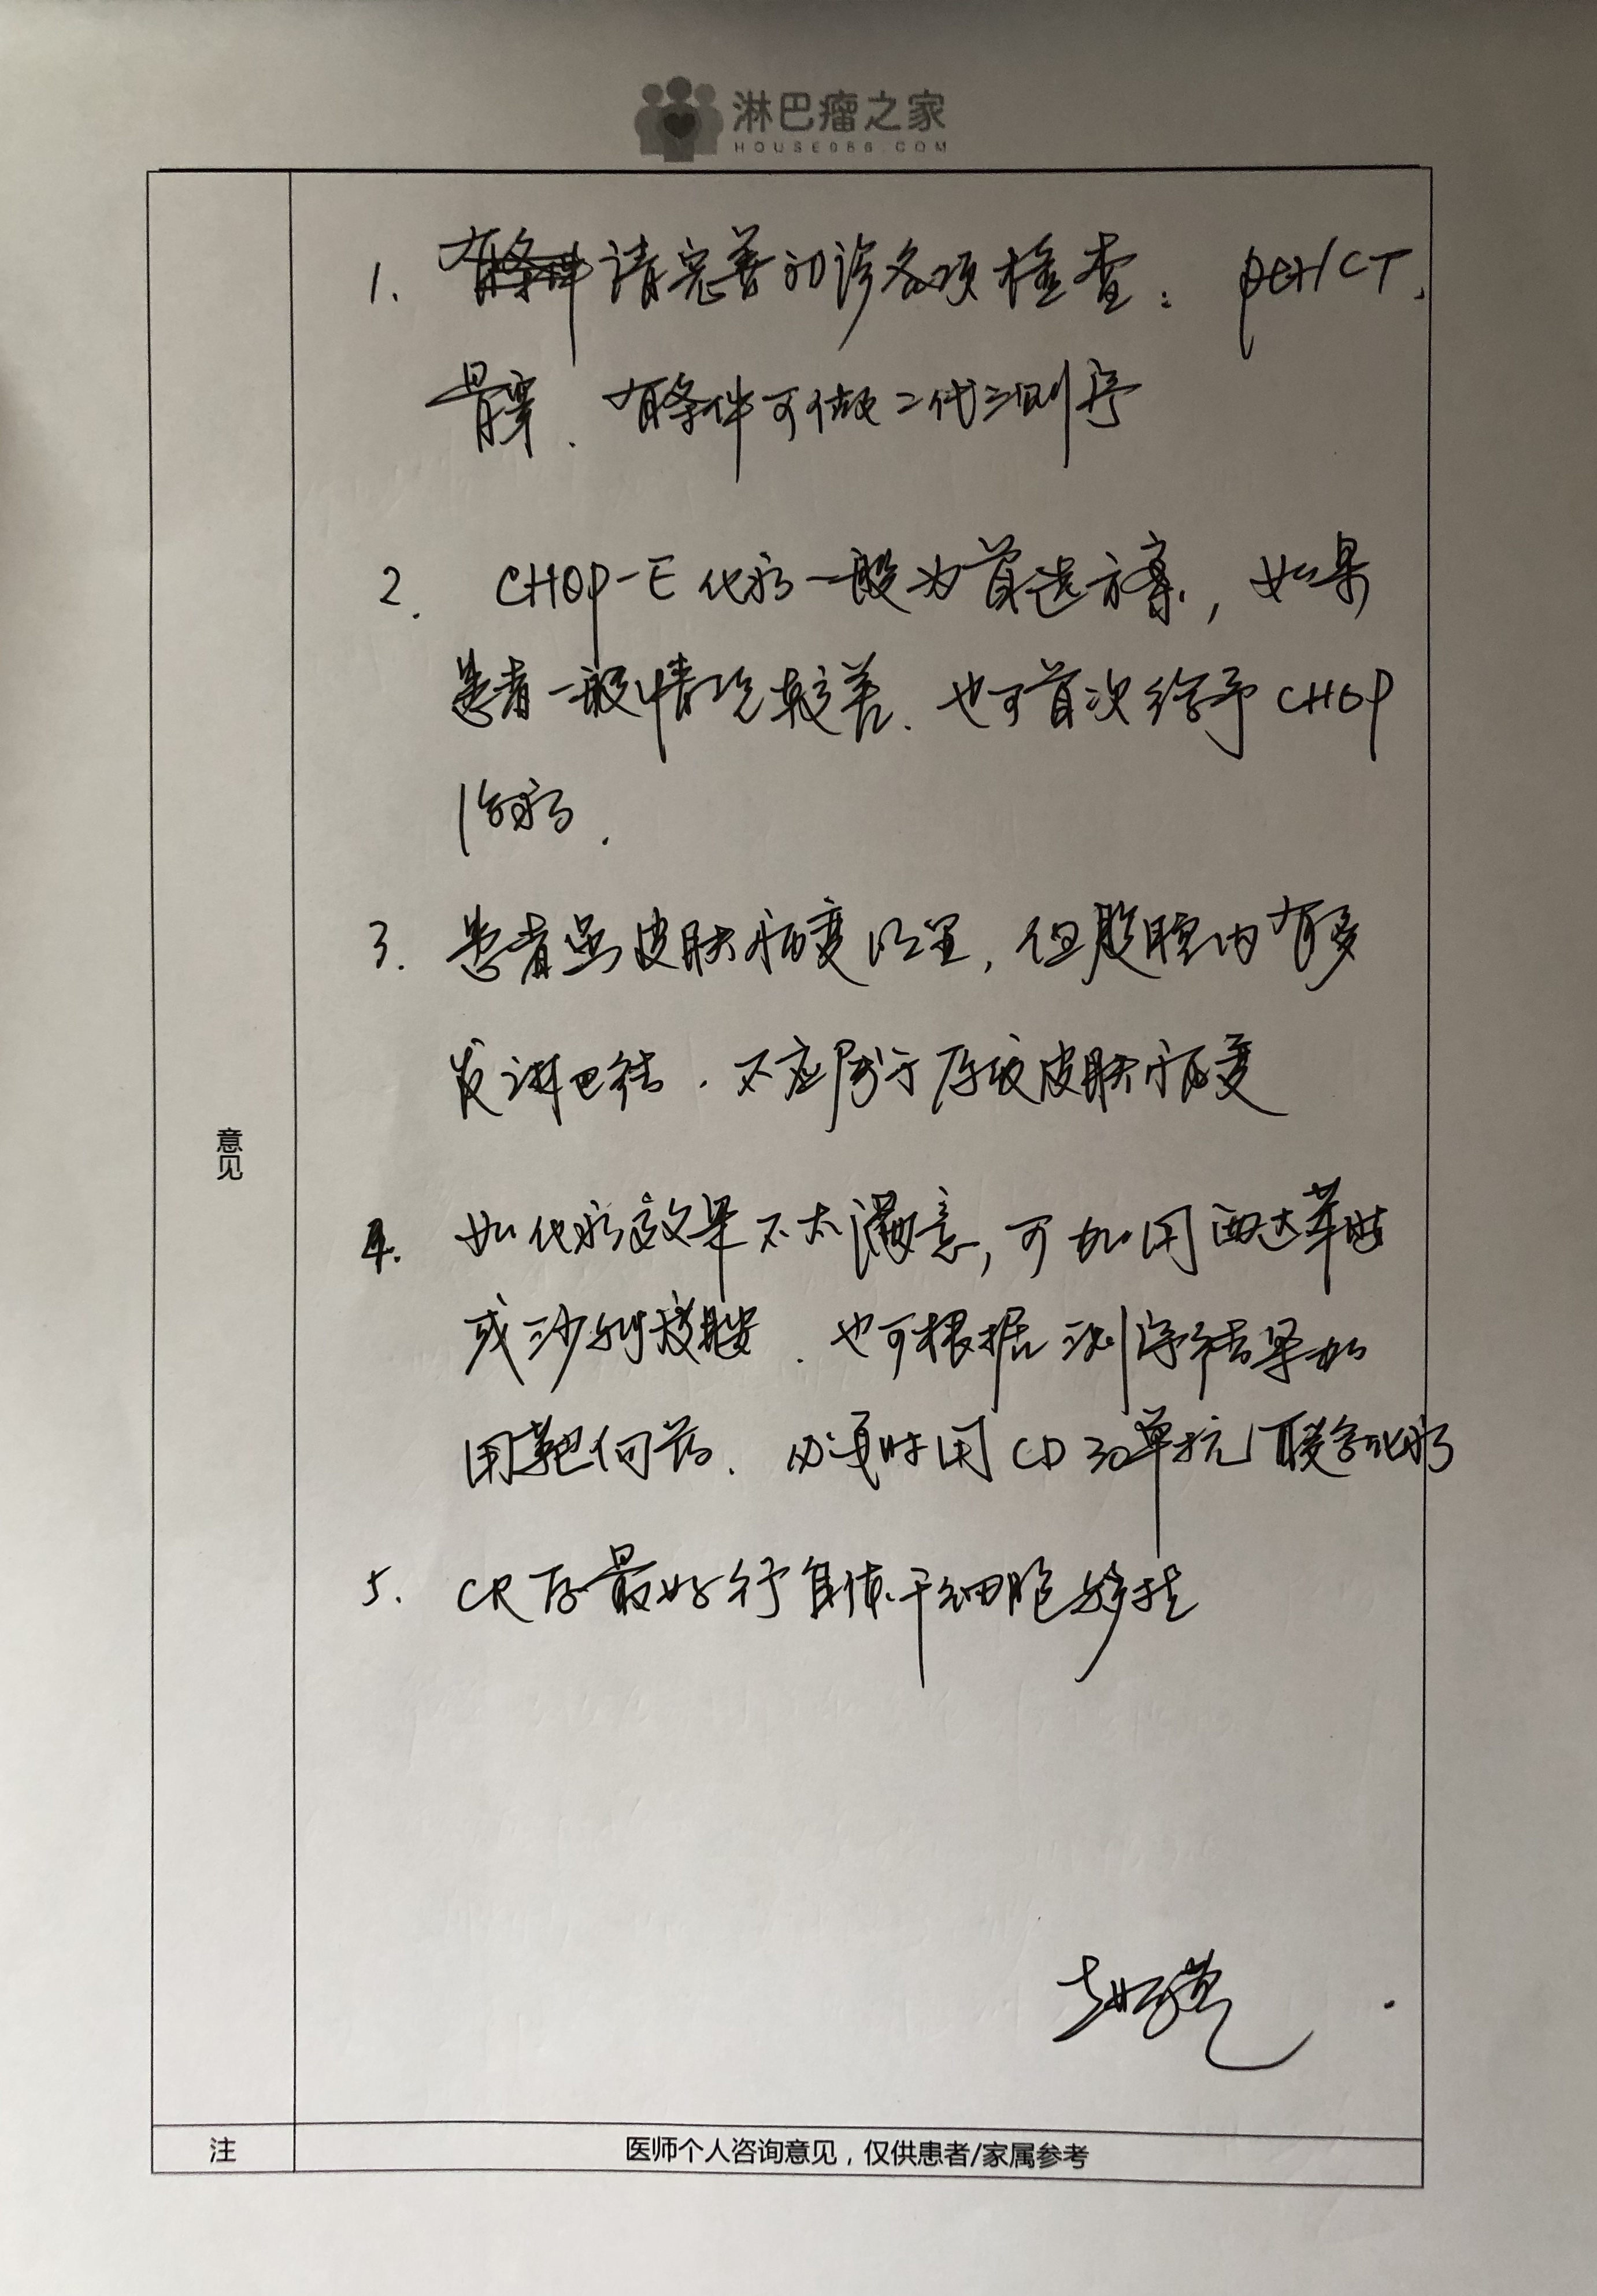 淋巴瘤之家
HOUSE086.COM
1. 请完善初诊各项检查：PET/CT、
骨穿、有条件可做二代测序
2. CHOP-E化疗一般为首选方案，如果
患者一般情况较差、也可首次给予CHOP
化疗.
3. 患者虽皮肤病变明显，但腹腔内有多
发淋巴结、不应属于原发皮肤病变
意见
4. 如化疗效果不太满意，可加用西达苯胺
或沙利度胺、也可根据测序结果加
用靶向药、必要时用CD30单抗联合化疗
5. CR后最好行自体干细胞移植
注
医师个人咨询意见，仅供患者/家属参考